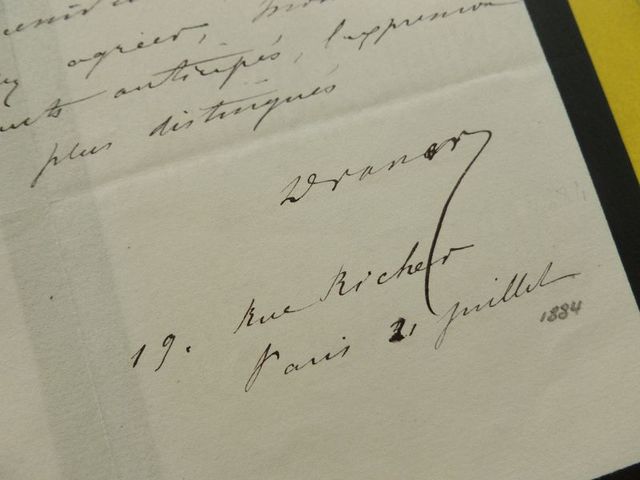 agréer,
anticipés, l'expression
plus distingués
Draner
19. Rue Richer
Paris 21 juillet
1884